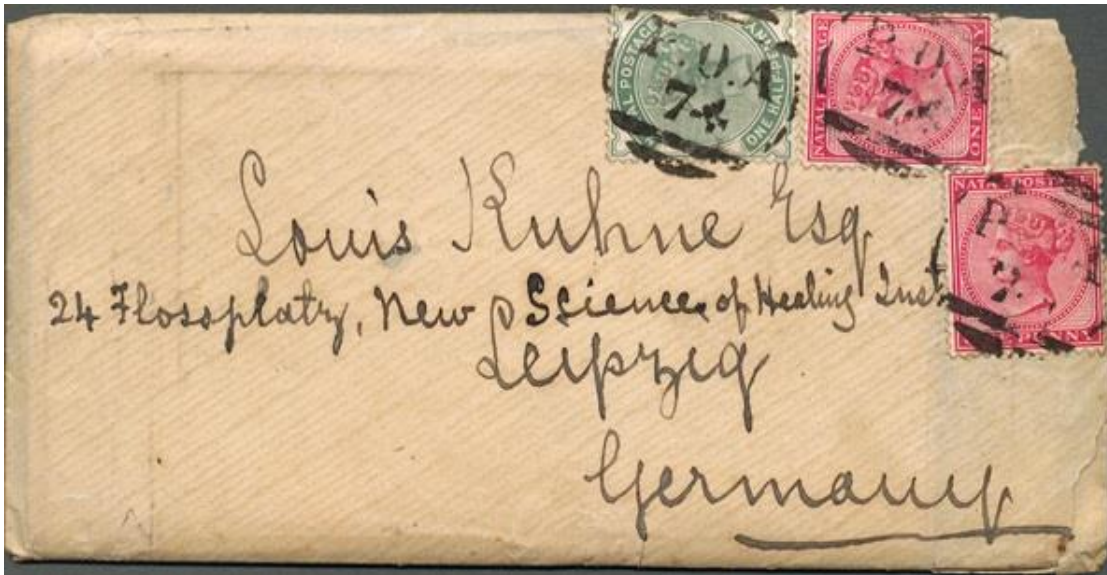 NATAL POSTAGE
ONE HALFPENNY
P.O.A
74
NATAL POSTAGE
ONE PENNY
P.O.A
74
NATAL POSTAGE
PENNY
P.
7
Louis Kuhne Esq
24 Flossplatz, New Science of Healing Inst
Leipzig
Germany